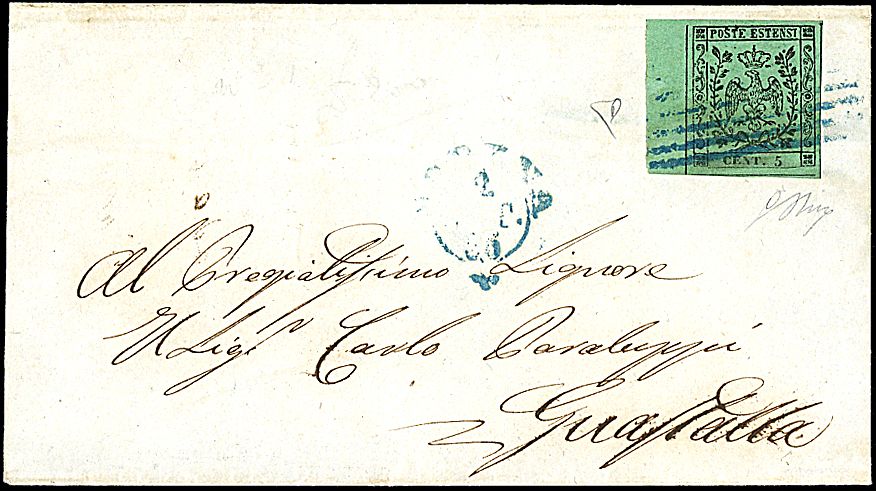 POSTE ESTENSI
CENT. 5
2
86
Al Pregiatissimo Signore
Il Sigr Carlo Paraluppi
Guastalla